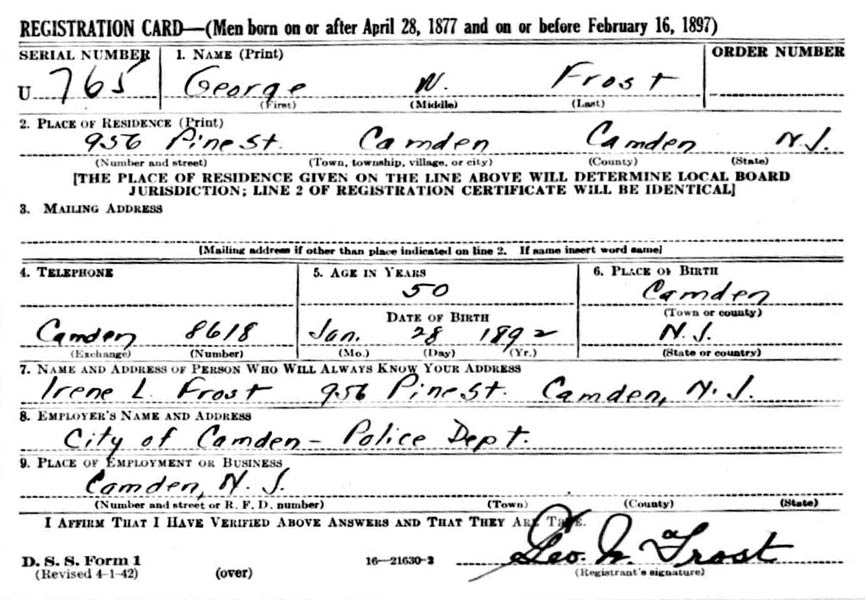 REGISTRATION CARD—(Men born on or after April 28, 1877 and on or before February 16, 1897)
SERIAL NUMBER 1. NAME (Print) ORDER NUMBER
U 765 George W. Frost
(First) (Middle) (Last)
2. PLACE OF RESIDENCE (Print)
956 Pine St. Camden Camden N.J.
(Number and street) (Town, township, village, or city) (County) (State)
[THE PLACE OF RESIDENCE GIVEN ON THE LINE ABOVE WILL DETERMINE LOCAL BOARD
JURISDICTION; LINE 2 OF REGISTRATION CERTIFICATE WILL BE IDENTICAL]
3. MAILING ADDRESS
[Mailing address if other than place indicated on line 2. If same insert word same]
4. TELEPHONE 5. AGE IN YEARS 6. PLACE OF BIRTH
50 Camden
DATE OF BIRTH (Town or county)
Camden 8618 Jan. 28 1892 N.J.
(Exchange) (Number) (Mo.) (Day) (Yr.) (State or country)
7. NAME AND ADDRESS OF PERSON WHO WILL ALWAYS KNOW YOUR ADDRESS
Irene L. Frost 956 Pine St. Camden, N.J.
8. EMPLOYER'S NAME AND ADDRESS
City of Camden - Police Dept.
9. PLACE OF EMPLOYMENT OR BUSINESS
Camden, N.J.
(Number and street or R. F. D. number) (Town) (County) (State)
I AFFIRM THAT I HAVE VERIFIED ABOVE ANSWERS AND THAT THEY ARE TRUE.
D. S. S. Form 1 Geo. W. Frost
(Revised 4-1-42) (over) 16—21630-2 (Registrant's signature)